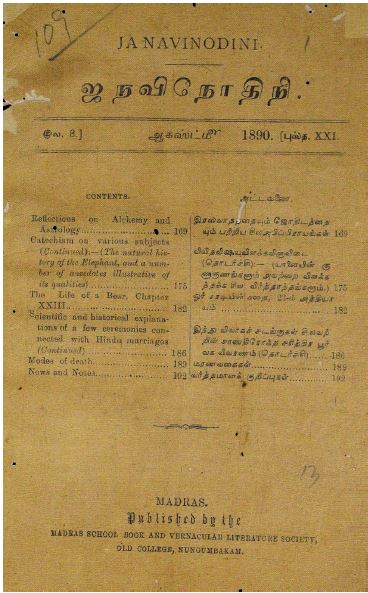 109
JANAVINODINI.
1
ஜநவிநோதிநி.
இல. 8.] ஆகஸ்ட்மீ 1890. [புஸ்த. XXI.
CONTENTS.
Reflections on Alchemy and
Astrology 169
Catechism on various subjects
(Continued):—(The natural his-
tory of the Elephant, and a num-
ber of anecdotes illustrative of
its qualities) 175
The Life of a Bear, Chapter
XXIII. 182
Scientific and historical explana-
tions of a few ceremonies con-
nected with Hindu marriages
(Continued) 186
Modes of death 189
News and Notes 192
அட்டவணை.
இரஸவாதத்தையும் ஜோதிடத்தை
யும் பற்றிய சில அபிப்பிராயங்கள் 169
விவிதவிஷயவினாவிடை
(தொடர்ச்சி):— (யானையின் கு
விளக்கத்
தக்க சில விர்த்தாந்தங்களும்) 175
ஓர் கரடியின் கதை, 23-ம் அத்தியா
யம் 182
இந்து விவாகச் சடங்குகள் சிலவற்
றின் சாஸ்திரோக்த சரித்திர பூர்
வக விவரணம் (தொடர்ச்சி) 186
மரணவகைகள் 189
வர்த்தமானக் குறிப்புகள் 192
13
MADRAS.
Published by the
MADRAS SCHOOL BOOK AND VERNACULAR LITERATURE SOCIETY,
OLD COLLEGE, NUNGUMBAKAM.